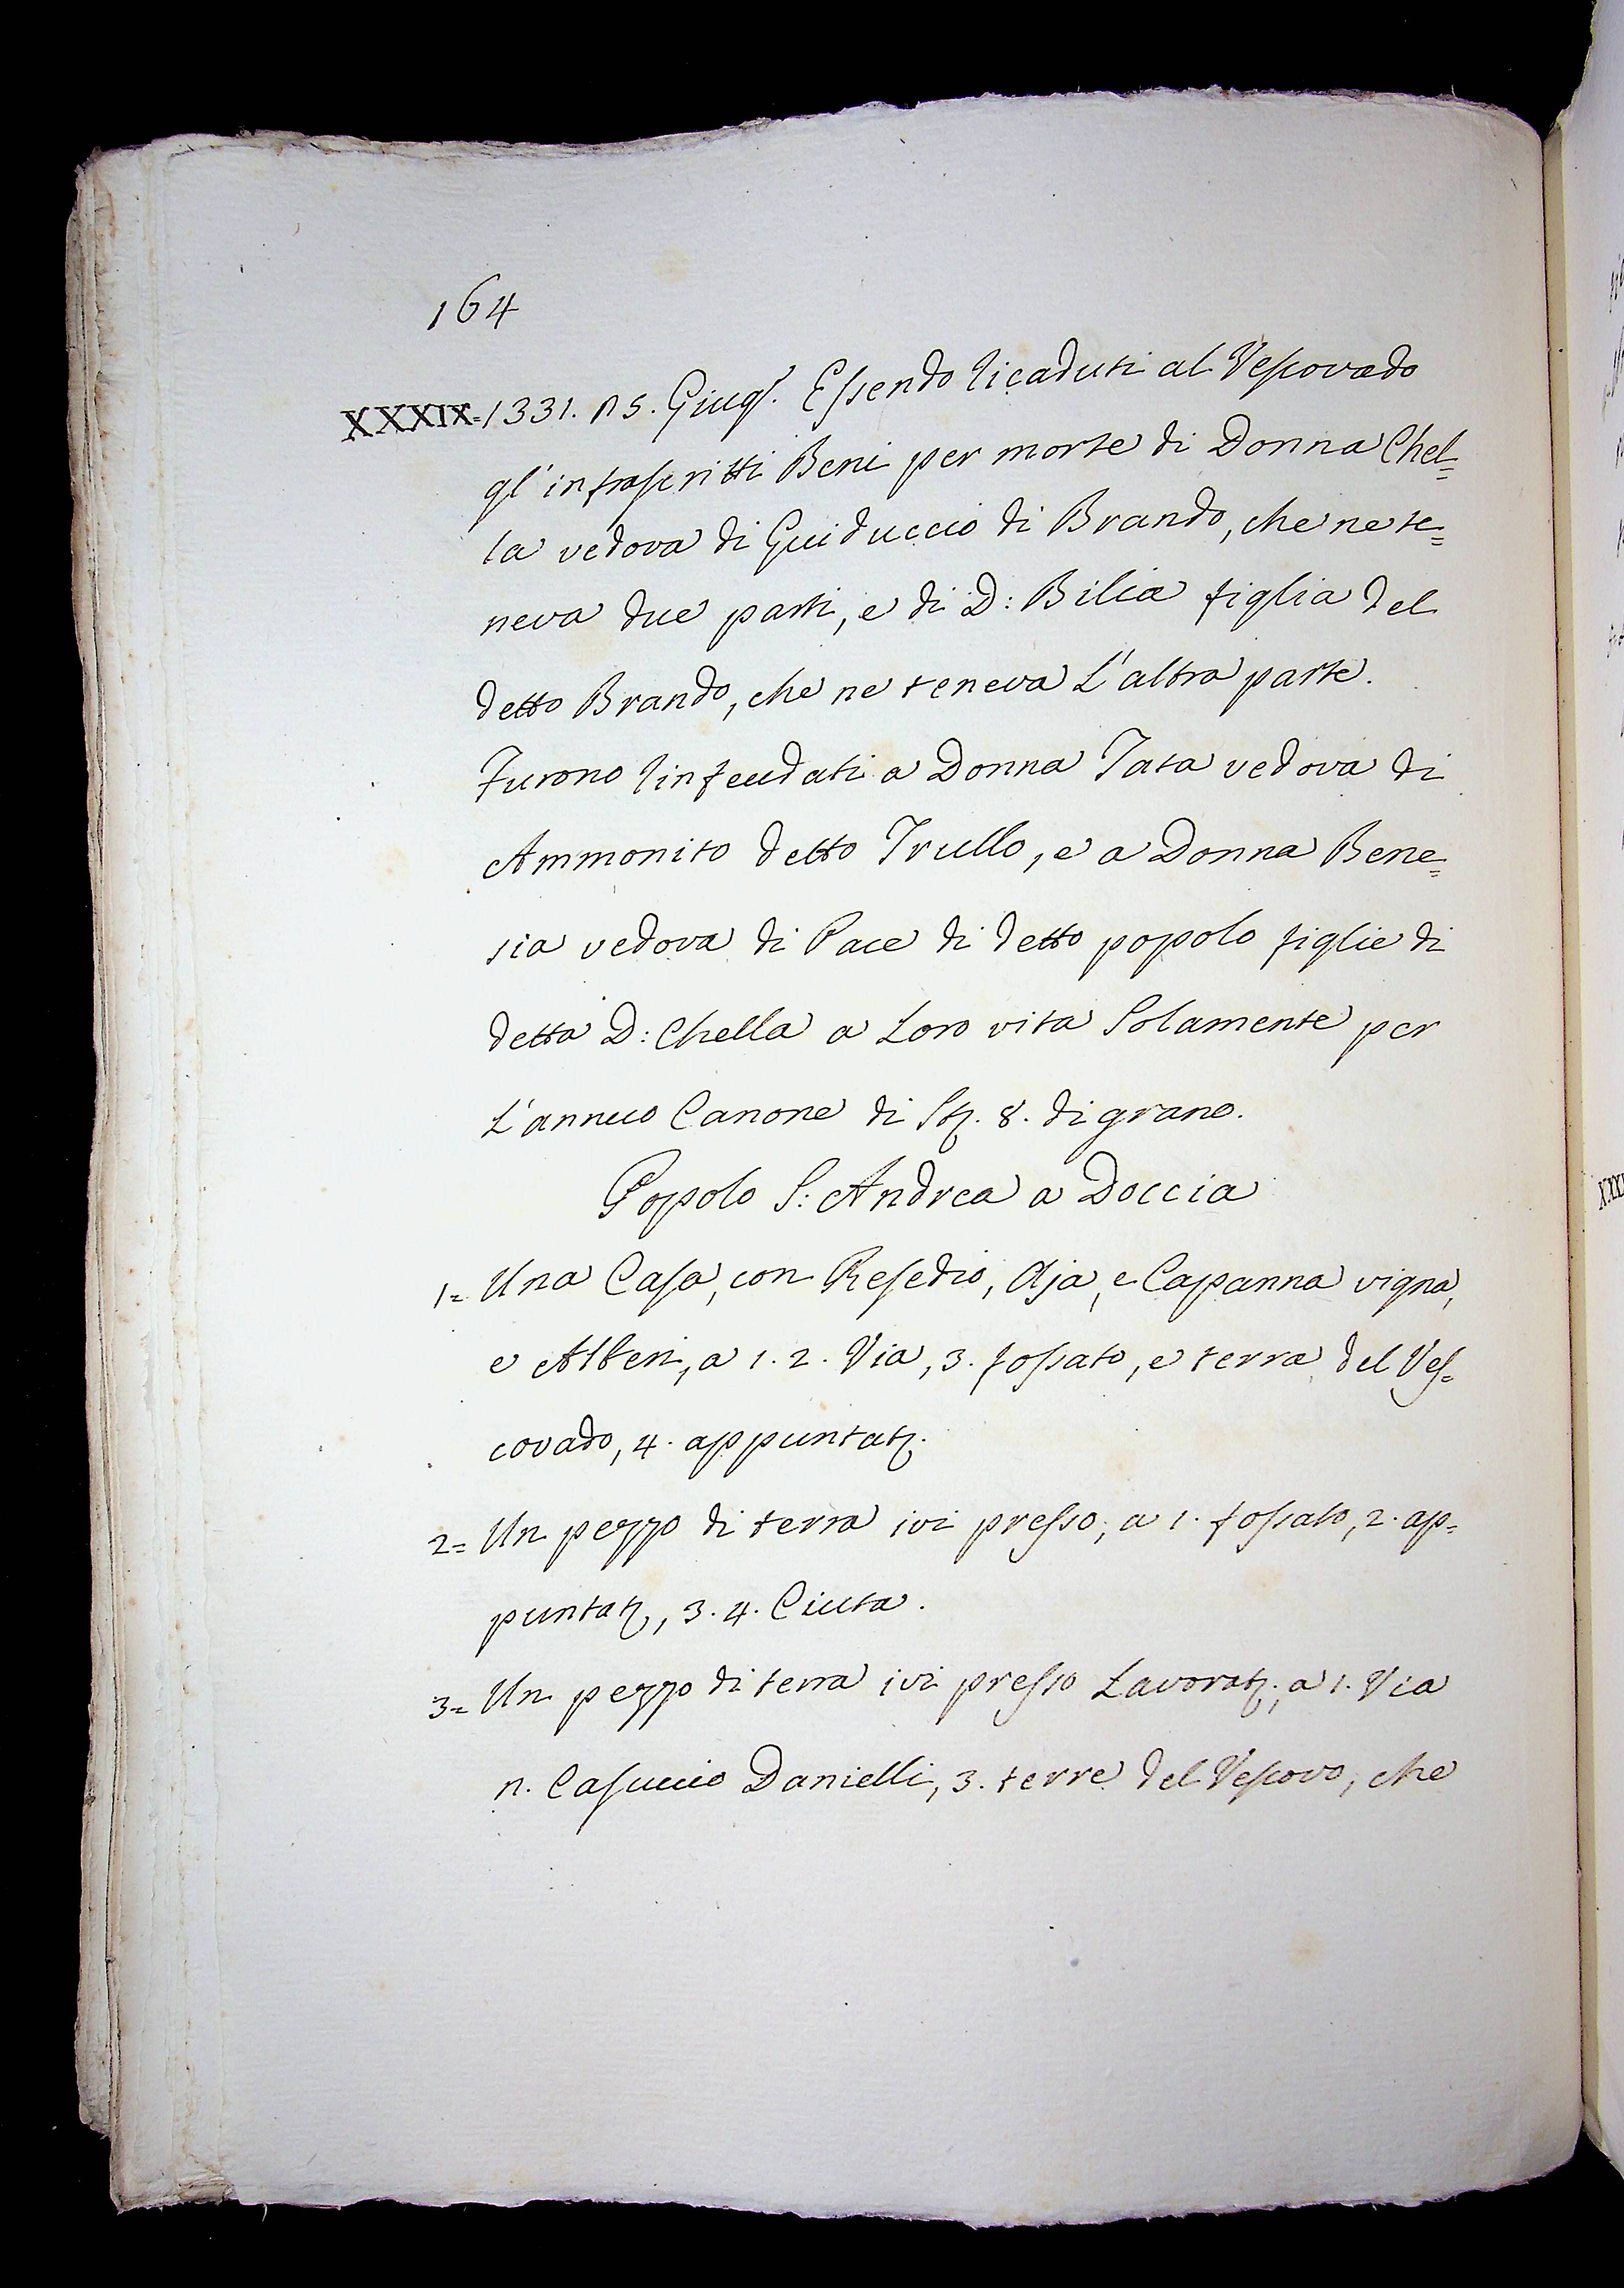 164
XXXIX = 1331. n 5. Giugº. Essendo ricaduti al Vescovado
gl'infrascritti Beni per morte di Donna Chel=
la vedova di Guiduccio di Brando, che ne te=
neva due parti, e di D: Bilia figlia del
detto Brando, che ne teneva L'altra parte.
Furono rinfeudati a Donna Tata vedova di
Ammonito detto Trullo, e a Donna Bene=
sia vedova di Pace di detto popolo figlie di
detta D: Chella a Loro vita Solamente per
L'annuo Canone di Stz. 8. di grano.
Popolo S: Andrea a Doccia
1= Una Casa, con Resedio, Aja, e Capanna vigna,
e Alberi, a 1. 2. Via, 3. fossato, e terra del Ves=
covado, 4. appuntatz.
2= Un pezzo di terra ivi presso, a 1. fossato, 2. ap=
puntatz, 3. 4. Ciuta.
3= Un pezzo di terra ivi presso Lavoratz., a 1. Via
n. Casuccio Danielli, 3. terre del Vescovo, che